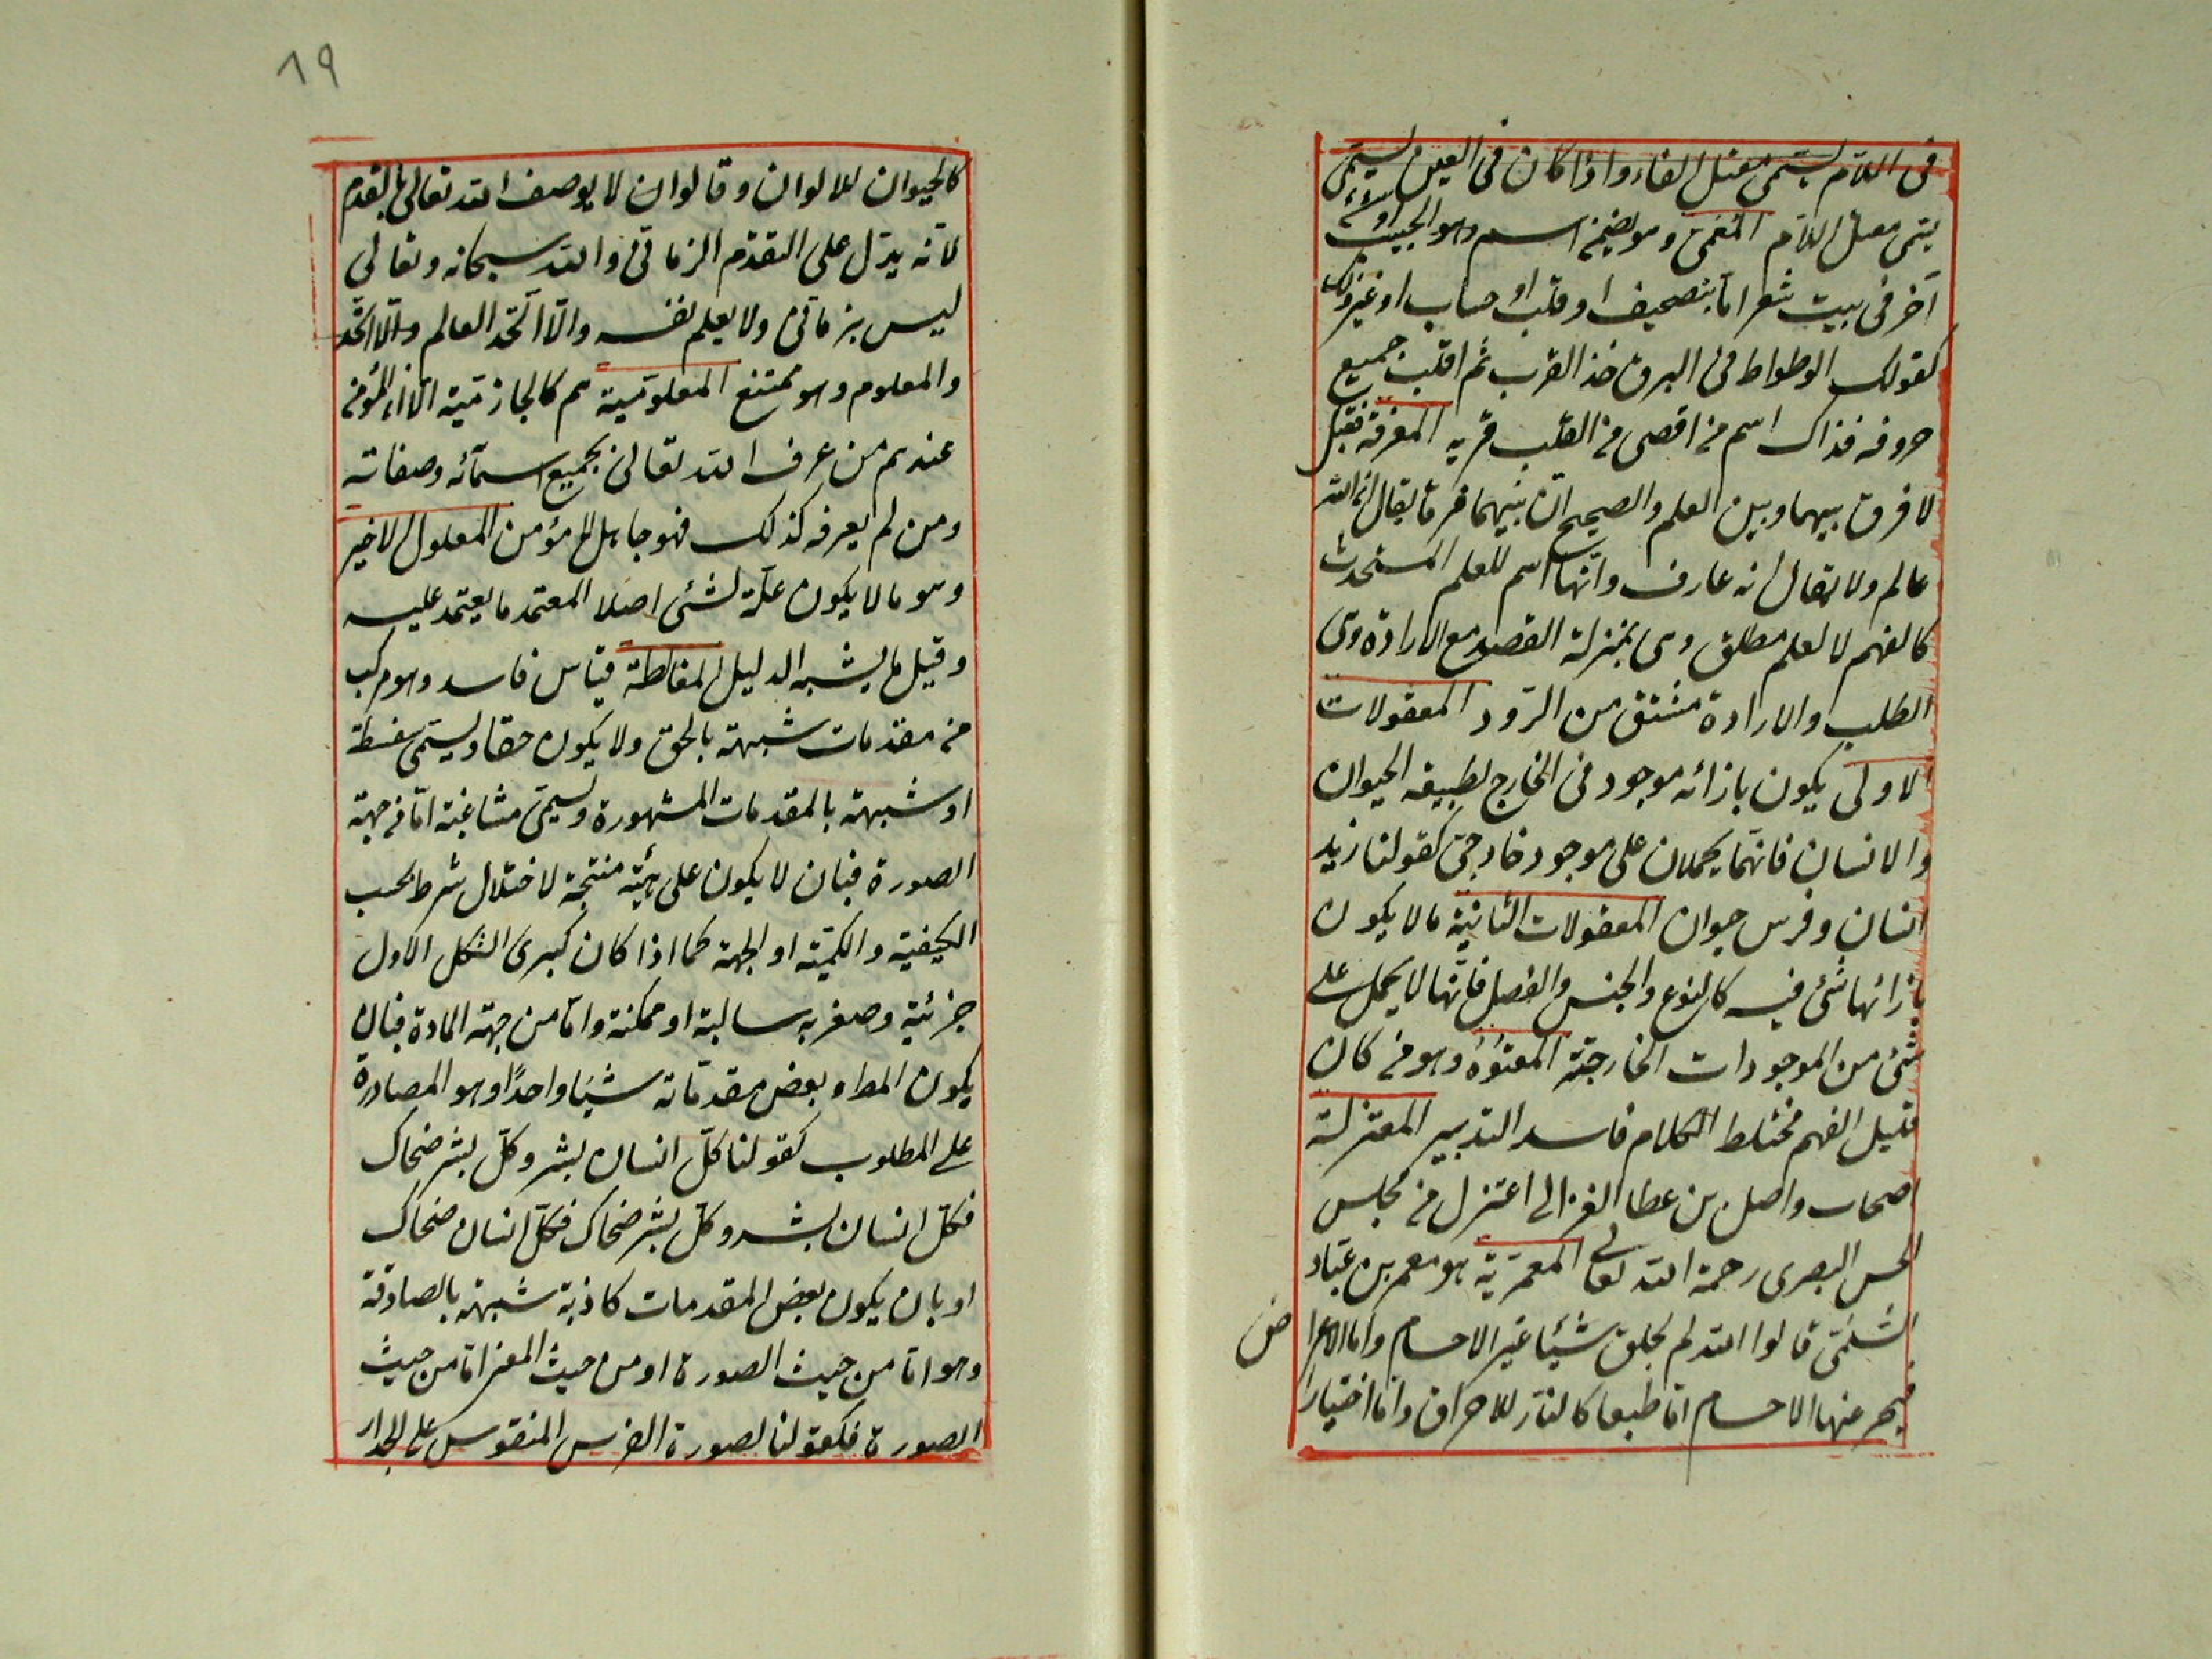 فى اللام يسمى معتل الفاء واذا كان فى العين يسمى
يسمى معتل اللام المعمى وهو تضمين اسم وهو الحبيب او شئ
آخر فى بيت شعر اما بتصحيف او قلب او حساب او غير ذلك
كقولك الوطواط فى البرق خذ القرب ثم اقلب جميع
حروفه فذاك اسم من اقصى من القلب قربه المعرفة فقيل
لا فرق بينهما وبين العلم والصحيح ان بينهما فرقا يقال ان الله
عالم ولا يقال انه عارف وانها اسم للعلم المستحدث
كالفهم لا لعلم مطلق وهى بمنزلة القصد مع الارادة وهى
الطلب والارادة مشتق من الرود المعقولات
الاولى يكون بازائه موجود فى الخارج لطبيعة الحيوان
والانسان فانهما يحملان على موجود خارجى كقولنا زيد
انسان وفرس حيوان المعقولات الثانية ما لا يكون
بازائها شئ فيه كالنوع والجنس والفصل فانها لا يحمل على
شئ من الموجودات الخارجية المعتوه وهو من كان
قليل الفهم مختلط الكلام فاسد التدبير المعتزلة
اصحاب واصل بن عطا الغزالى اعتزل من مجلس
الحسن البصرى رحمة الله تعالى المعمرية هو معمر بن عباد
السلمى قالوا الله لم يخلق شيئا غير الاجسام واما الاعرا
ض
عنها الاجسام اما طبعا كالنار للاحراق واما اختيارا
١٩
كالحيوان للالوان وقالوا ان لا يوصف الله تعالى بالقدم
لانه يدل على التقدم الزمانى والله سبحانه وتعالى
ليس بزمانى ولا يعلم نفسه والا اتحد العالم والا اتحد
والمعلوم وهو ممتنع المعلومية هم كالجازمية الا ان المؤمن
عندهم من عرف الله تعالى بجميع اسمائه وصفاته
ومن لم يعرفه كذلك فهو جاهل لا مؤمن المعلول الاخير
وهو ما لا يكون علة لشئ اصلا المعتمد ما يعتمد عليه
وقيل ما يشبه الدليل المغالطة قياس فاسد وهو مركب
من مقدمات شبيهة بالحق ولا يكون حقا ويسمى سفسطة
او شبيهة بالمقدمات المشهورة ويسمى مشاغبة اما من جهة
الصورة فبان لا يكون على هيئة منتجة لاختلال شرط بحسب
الكيفية والكمية او الجهة كما اذا كان كبرى الشكل الاول
جزئية وصغريه سالبة او ممكنة واما من جهة المادة فبان
يكون المط وبعض مقدماته شيئا واحدا وهو المصادرة
على المطلوب كقولنا كل انسان بشر وكل بشر ضحاك
فكل انسان بشر وكل بشر ضحاك فكل انسان ضحاك
او بان يكون بعض المقدمات كاذبة شبيهة بالصادقة
وهو اما من حيث الصورة او من حيث المعنى اما من حيث
الصورة فكقولنا لصورة الفرس المنقوس على الجدار